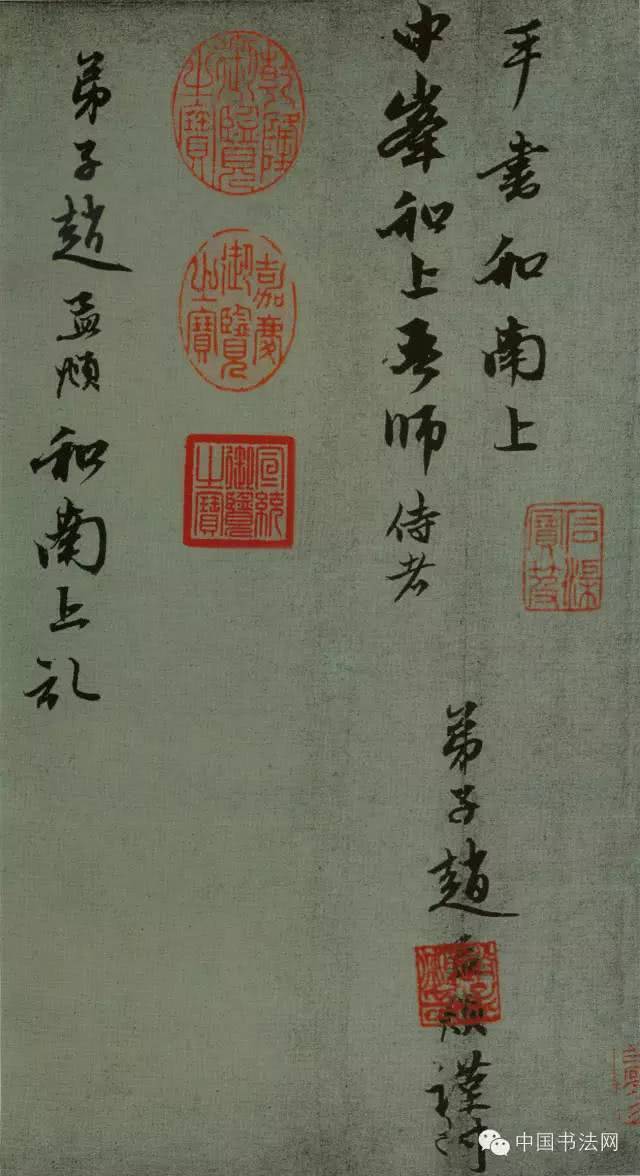 手書和南上
中峯和上吾師侍者
弟子趙孟頫謹封
乾隆御覽之寶
嘉慶御覽之寶
宣統御覽之寶
弟子趙孟頫和南上
中国书法网